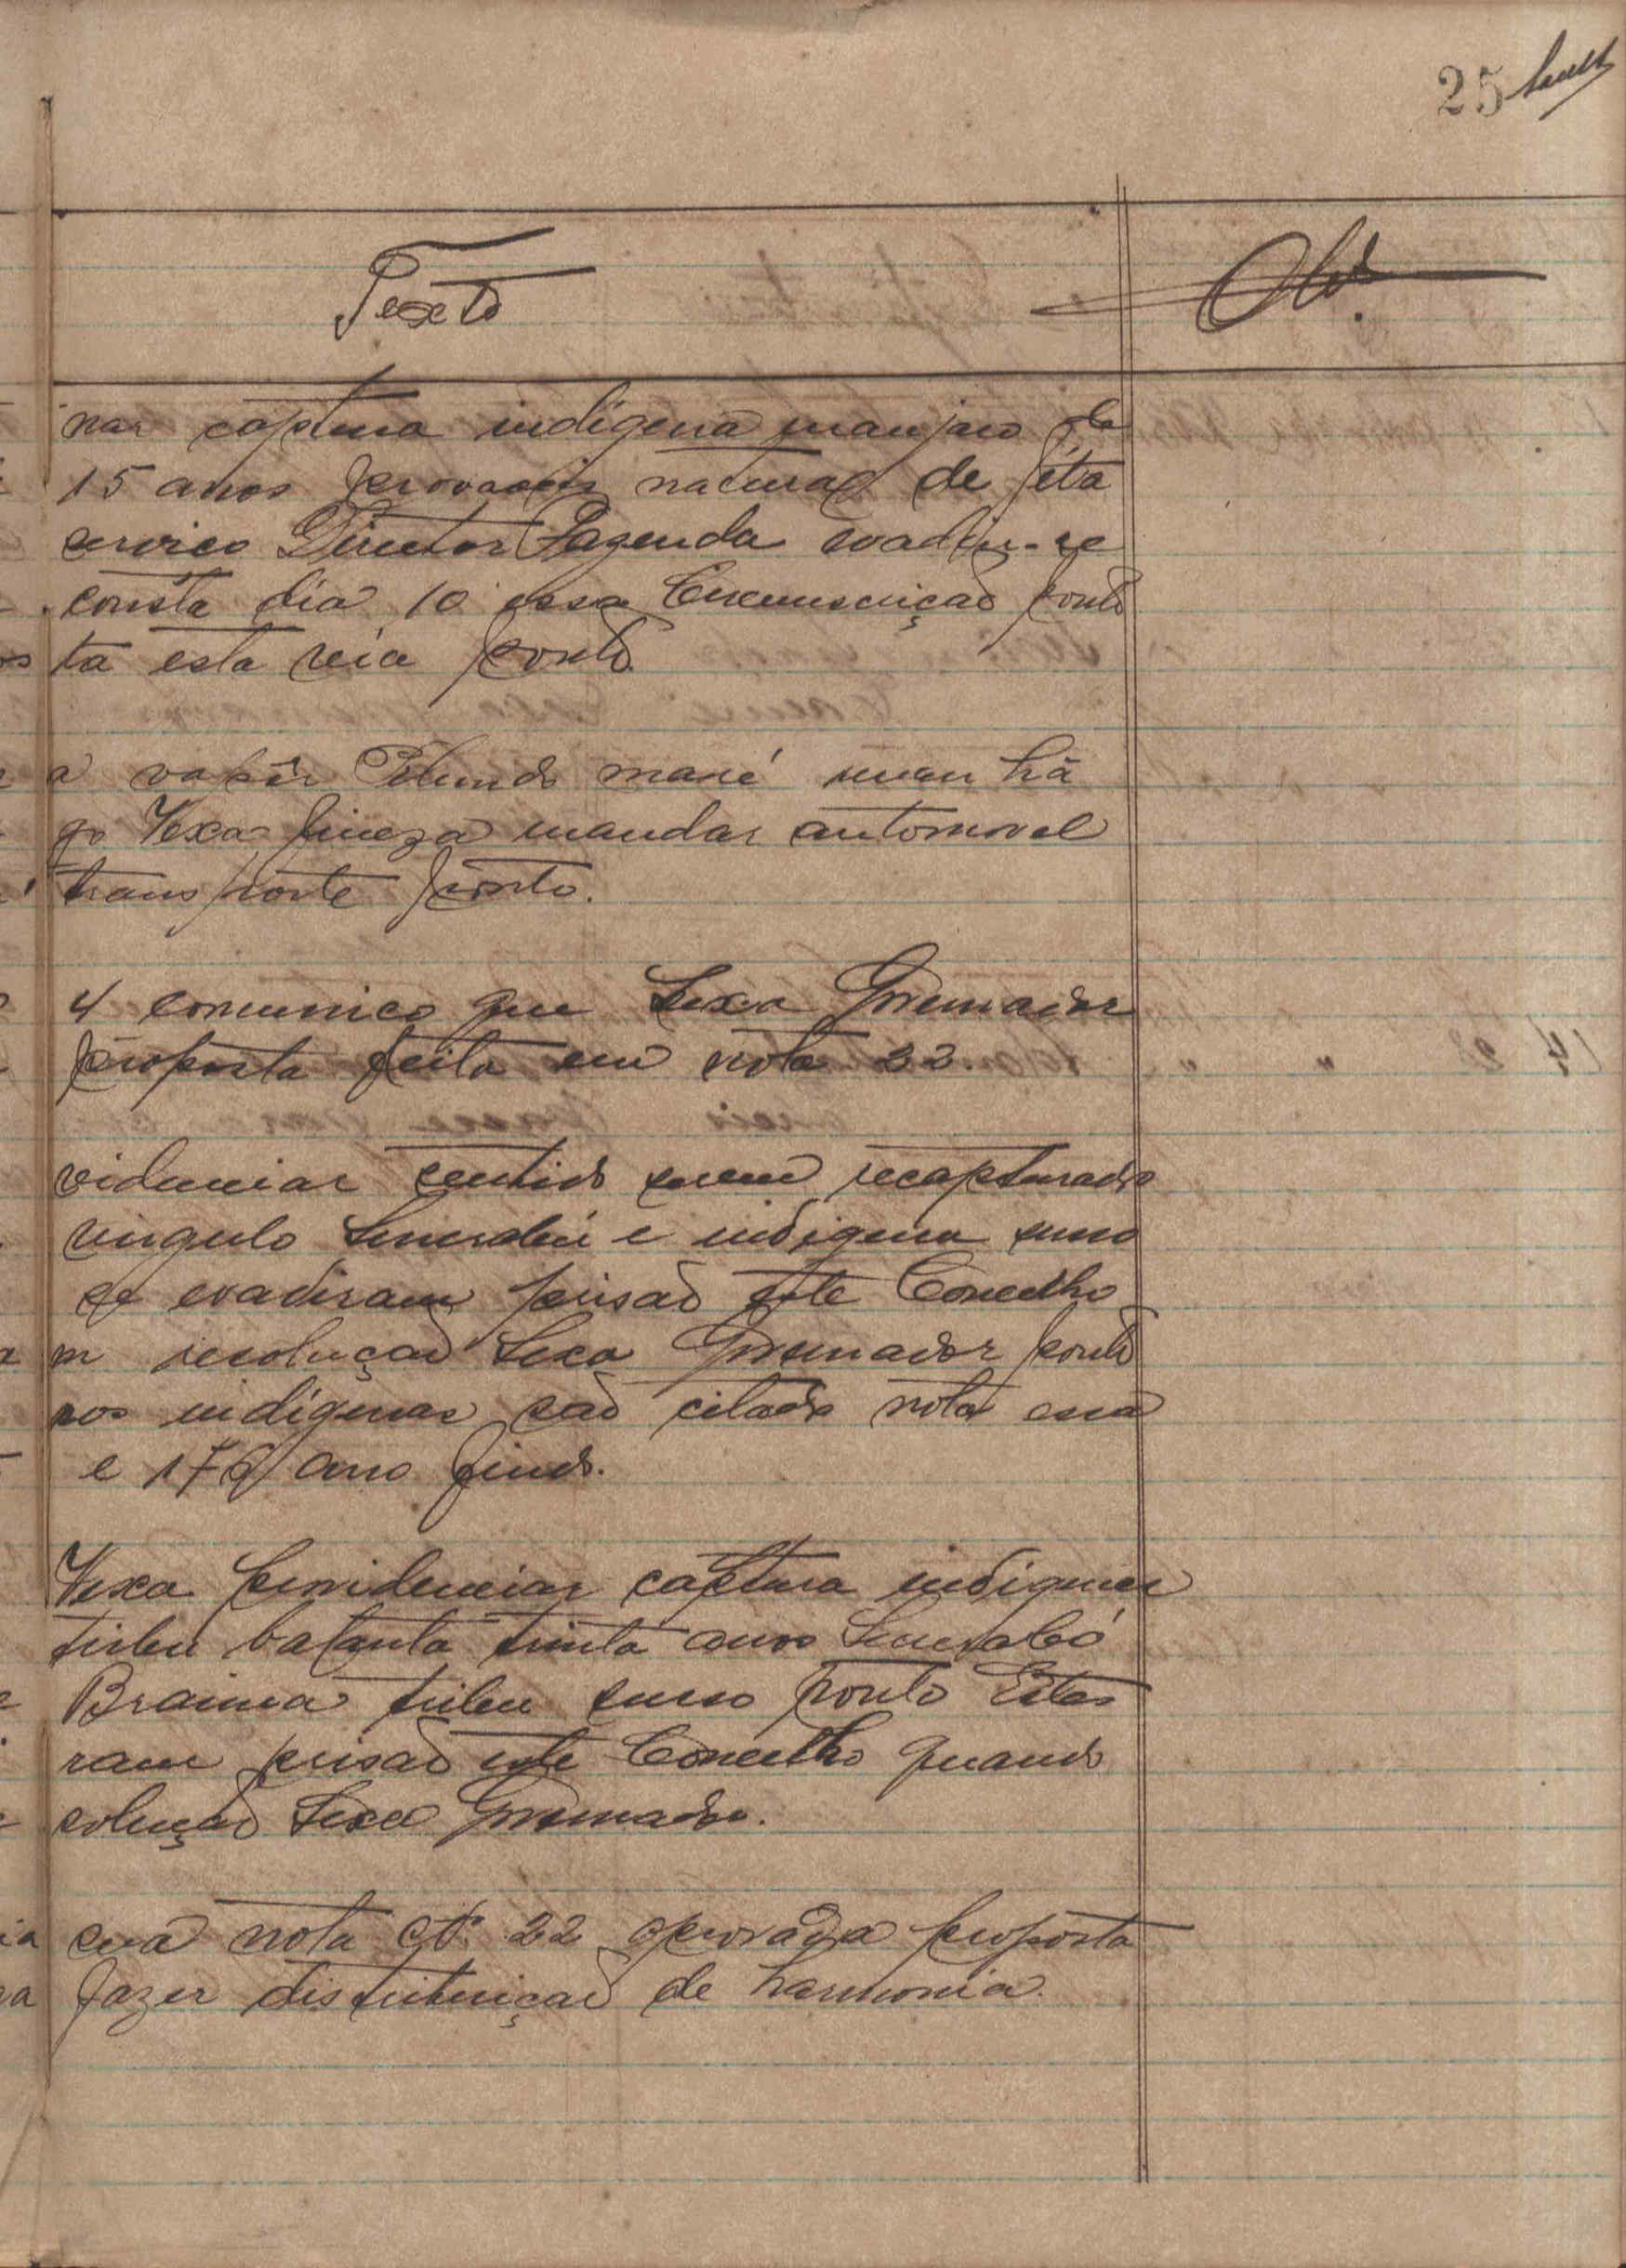 25
Texto
Obs.
nar captura indígena manjaco de
15 anos natural de Jéta
serviço Director Fazenda evadiu-se
consta dia 10 essa Circunscrição ponto
ta esta via ponto.
a vapôr maré manhã
go Vexa fineza mandar automovel
transporte ponto.
4 comunico que Sexa Governador
proposta feita em nota 22.
videnciar sentido serem recapturados
virgulo e indigena susso
se evadiram prisão este Concelho
m resolução Sexa Governador ponto
nos indigenas são citados nota essa
e 179 ano findo.
Vexa providenciar captura indigenas
tribu batanta trinta anos
Braima tribu susso ponto Estes
ram prisão este Concelho quando
solução Sexa Governador.
sua nota Nº 22 aprovada proposta
fazer distribuição de harmonia.